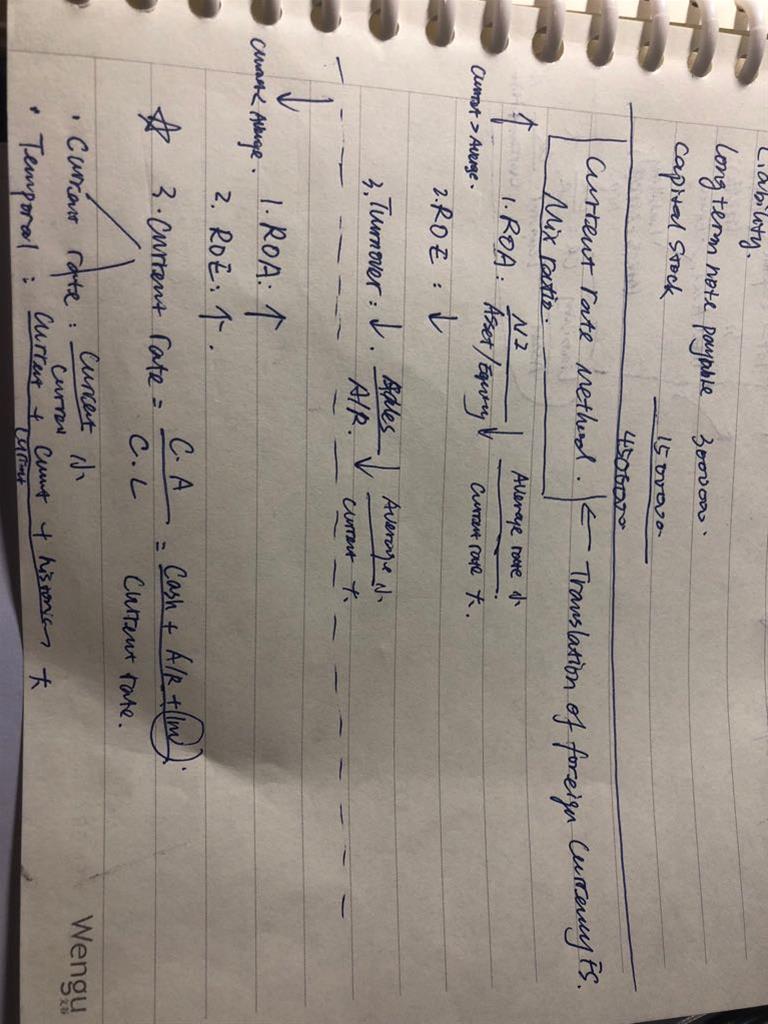 Liability.
Long term note payable 3000000.
capital stock 1500000
4500000
Current rate method. ← Translation of foreign currency FS.
Mix ratio.
↑ 1. ROA: NI / Asset/Equity ↓ Average rate 小 / Current rate 大.
Current > Average.
2. ROE: ↓
3. Turnover: ↓. Sales / A/R. ↓ Average 小 / Current 大.
↓ 1. ROA: ↑
Current < Average.
2. ROE: ↑.
☆ 3. Current rate = C.A / C.L = Cash + A/R + Inv. / Current rate.
· Current rate: Current / Current 小
· Temporal: Current + Current + historical / Current 大
Wengu
文谷